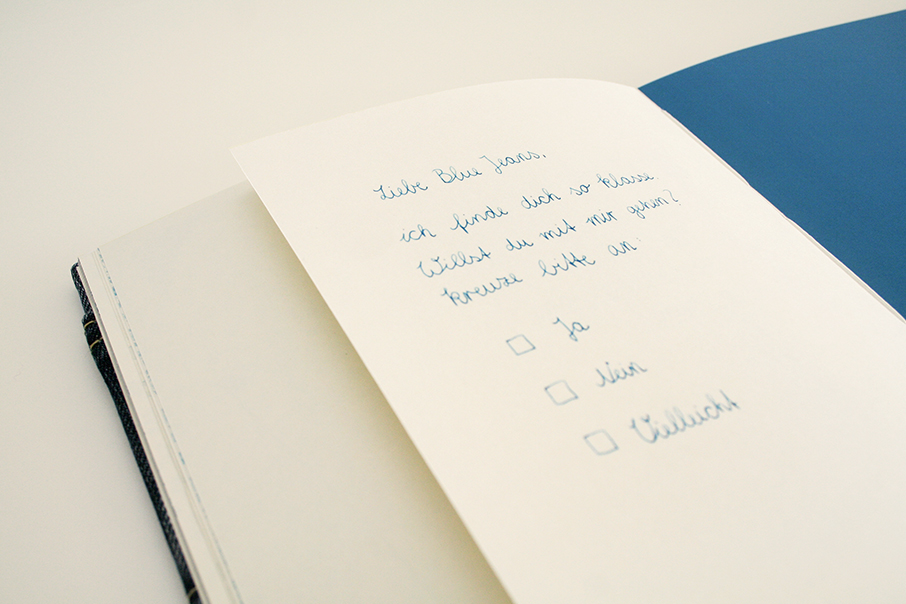 Liebe Blue Jeans,
ich finde dich so klasse.
Willst du mit mir gehen?
kreuze bitte an:
Ja
Nein
Vielleicht